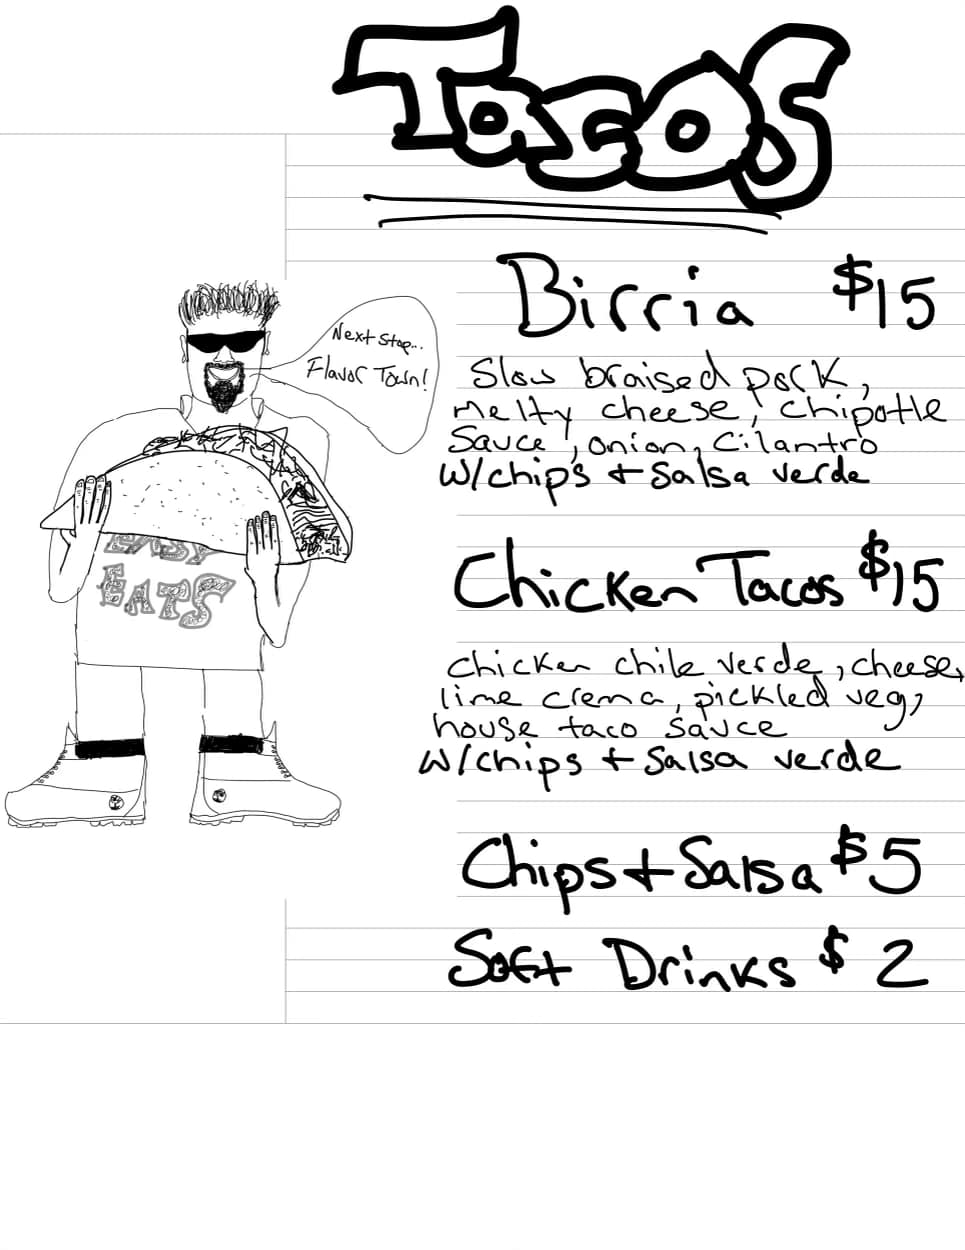 Tacos
Birria $15
Slow braised pork,
melty cheese, chipotle
sauce, onion, cilantro
w/chips + salsa verde
Chicken Tacos $15
chicken chile verde, cheese,
lime crema, pickled veg,
house taco sauce
w/chips + salsa verde
Chips + Salsa $5
Soft Drinks $2
Next stop...
Flavor Town!
EASY
EATS